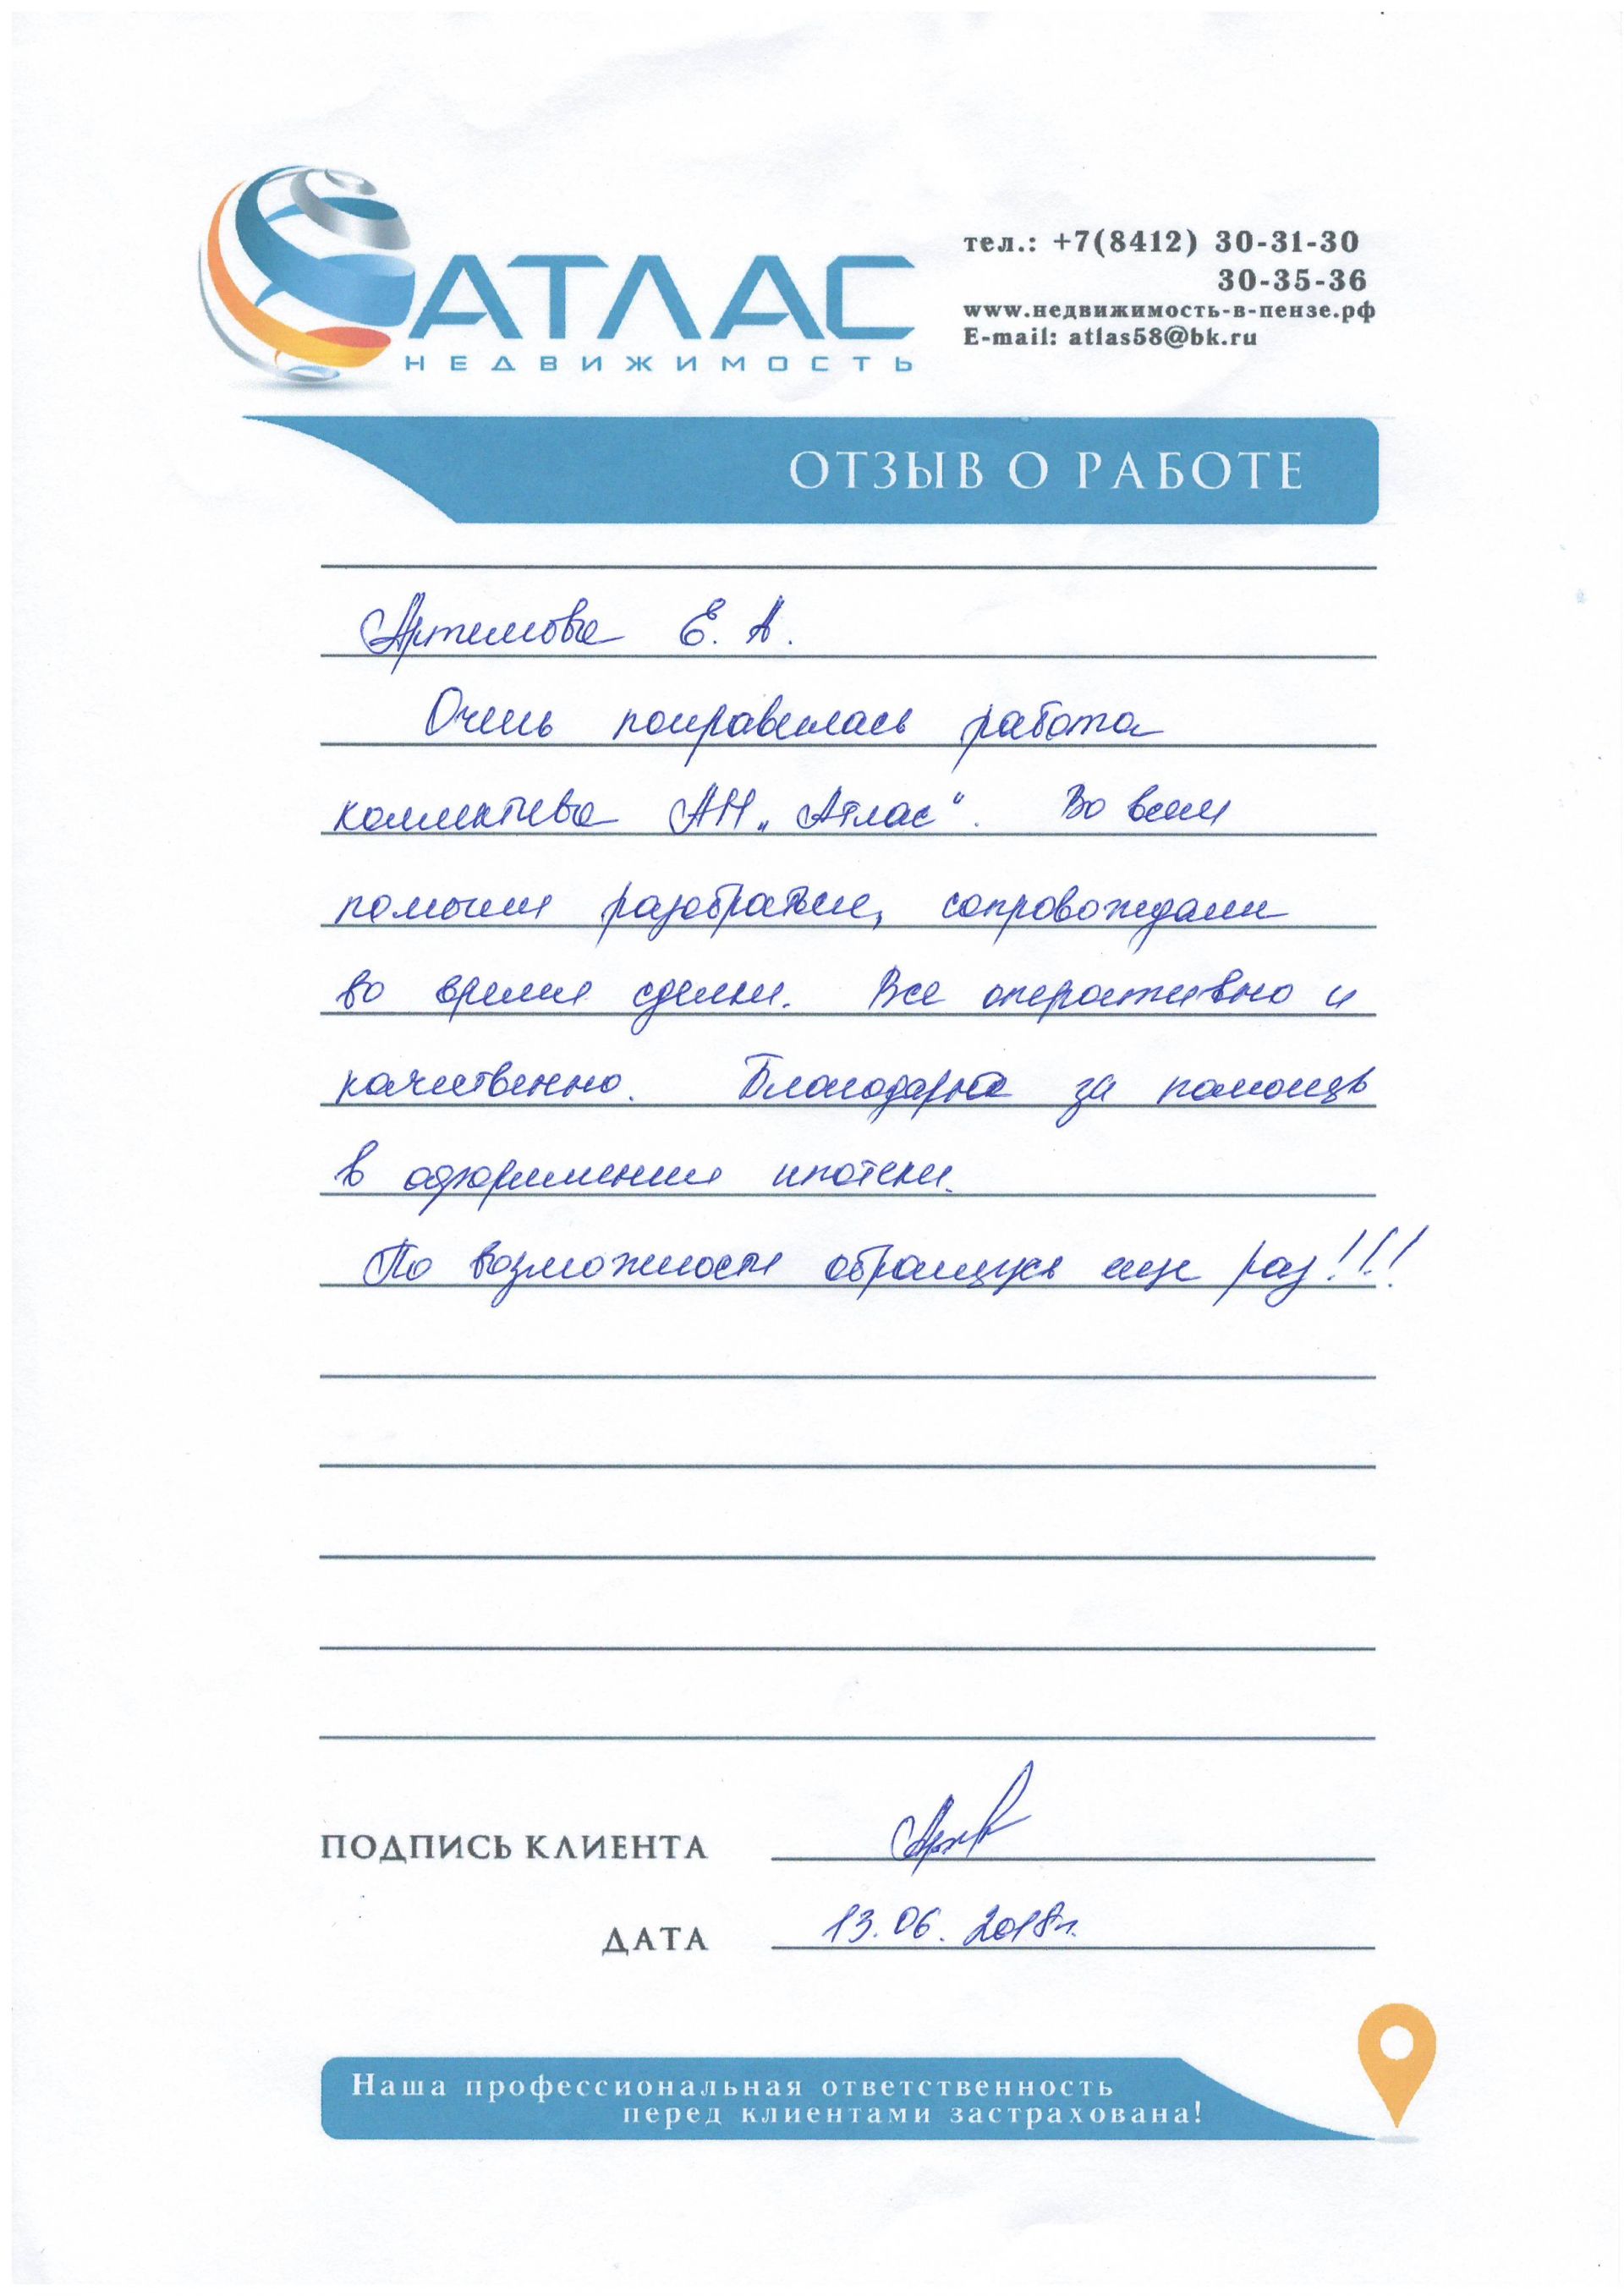 АТЛАС
НЕДВИЖИМОСТЬ
тел.: +7(8412) 30-31-30
30-35-36
www.недвижимость-в-пензе.рф
E-mail: atlas58@bk.ru
ОТЗЫВ О РАБОТЕ
Артемова Е. А.
Очень понравилась работа
коллектива АН „Атлас“. Во всем
помогли разобраться, сопровождали
во время сделки. Все оперативно и
качественно. Благодарна за помощь
в оформлении ипотеки.
По возможности обращусь еще раз!!!
ПОДПИСЬ КЛИЕНТА
ДАТА 13.06.2018г.
Наша профессиональная ответственность
перед клиентами застрахована!